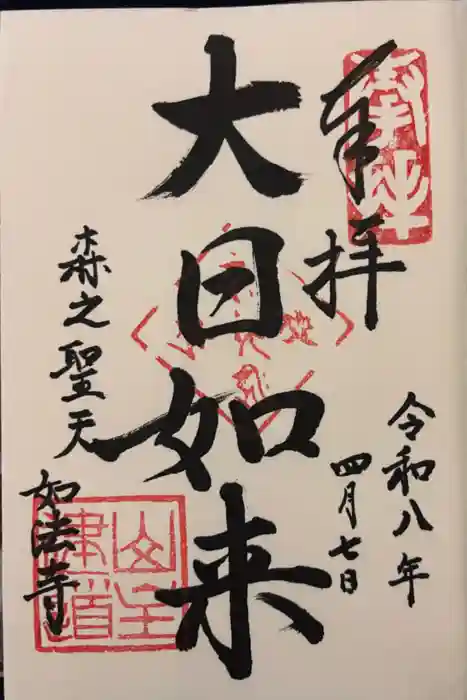 奉拝
令和八年
四月七日
大日如来
森之聖天
如法寺
奉拝